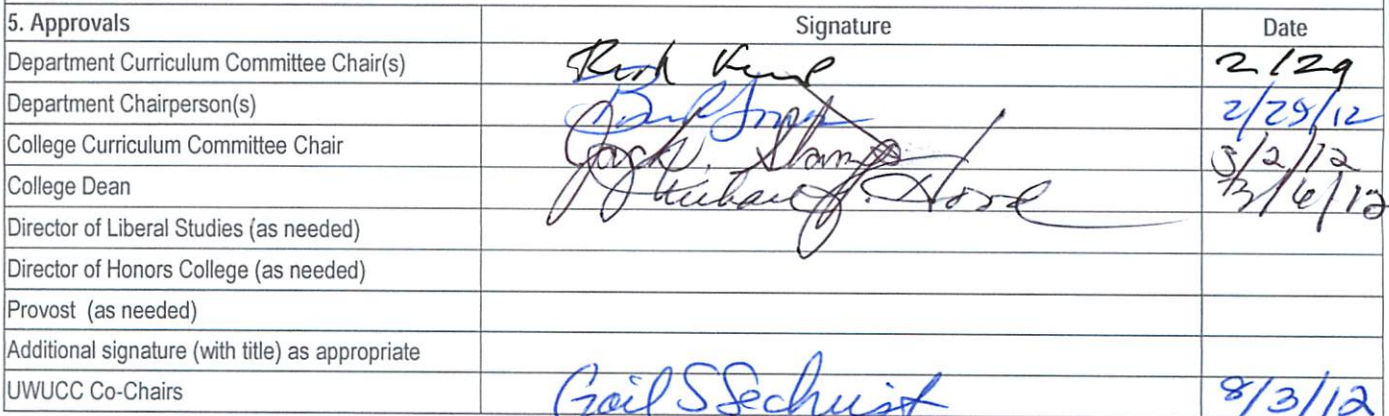 5. Approvals Signature Date
Department Curriculum Committee Chair(s) 2/29
Department Chairperson(s) 2/29/12
College Curriculum Committee Chair Jack Stamp 3/2/12
College Dean Michael J. Hood 3/6/12
Director of Liberal Studies (as needed)
Director of Honors College (as needed)
Provost (as needed)
Additional signature (with title) as appropriate
UWUCC Co-Chairs Gail S Sechrist 8/3/12